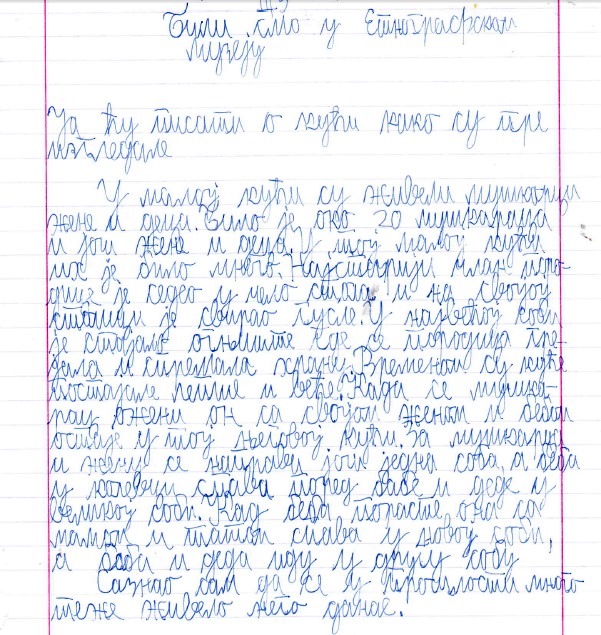 III-3
Били смо у Етнографском
музеју
Ја ћу писати о кући како су пре
изгледале
У малој кући су живели мушкарци
жене и деца. Било је око 20 мушкараца
и још жене и деца. У тој малој кући
их је било много. Најстарији члан поро-
дице је седео у чело стола и на својој
столици је свирао гусле. У највећој соби
је стојало огњиште где се породица гре-
јала и спремала храну. Временом су куће
постајале лепше и веће. Када се мушка-
рац ожени он са својом женом и бебом
остаје у тој његовој кући. За мушкарца
и жену се направи још једна соба, а беба
у колевци спава поред бабе и деде у
великој соби. Кад беба порасте она са
мамом и татом спава у новој соби,
а баба и деда иду у другу собу
Сазнао сам да се у прошлости много
теже живело него данас.